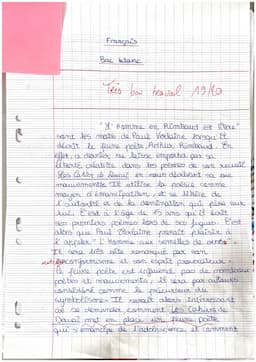 Français
Bac blanc
Très bon travail 19/20
"L'homme en Rimbaud est libre"
sont les mots de Paul Verlaine lorsqu'il
décrit le jeune poète Arthur Rimbaud. En
effet, ce dernier se laisse emporter par sa
liberté créatrice dans les poèmes de son recueil
Les Cahiers de Douai en nous dévoilant sa
mouvementée. Il utilise la poésie comme
moyen d'émancipation, et se libère de
l'autorité et de la domination qui pèse sur
lui. C'est à l'âge de 15 ans qu'il écrit
ses premiers poèmes lors de ses fugues. C'est
alors que Paul Verlaine prend plaisir à
l'appeler "L'homme aux semelles de vent".
Il sera très vite remarqué par son
anticonformisme et son esprit provocateur.
Le jeune poète est influencé par de nombreux
poètes et mouvements, il sera par ailleurs
considéré comme le précurseur du
symbolisme. Il serait alors intéressant
de se demander comment Les Cahiers de
Douai met en place un jeune poète
qui s'émancipe de l'adolescence et comment